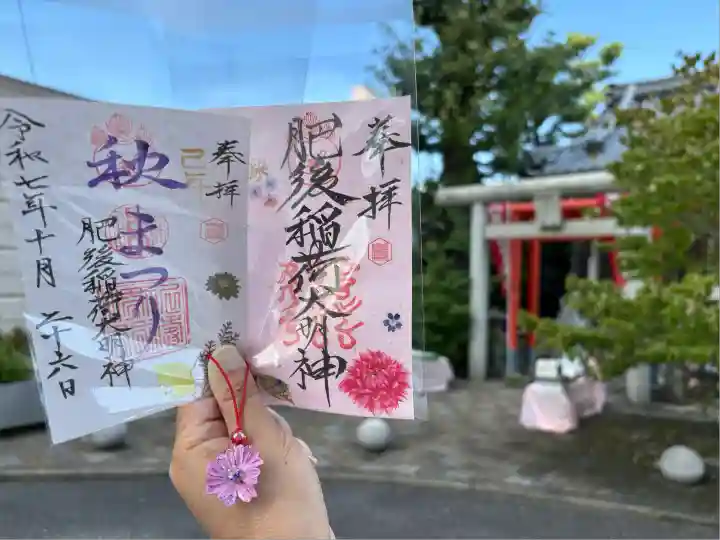 奉拝
肥後稲荷大明神
奉拝
己年
秋まつり
肥後稲荷大明神
令和七年十月
二十六日